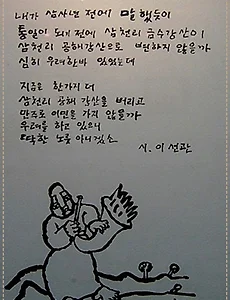 내가 십사년 전에 말했듯이
통일이 되기 전에 삼천리 금수강산이
삼천리 공해강산으로 변하지 않을까
심히 우려한바 있었는데
지금은 한가지 더
삼천리 공해 강산을 버리고
만주로 이민을 가지 않을까
우려를 하고 있으니
딱한 노릇 아니겠소
시. 이선관